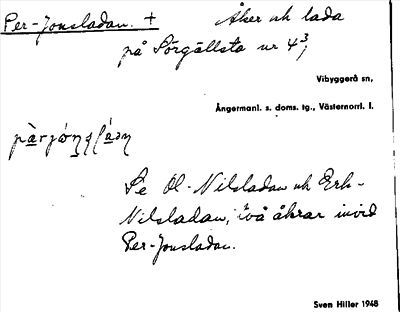 Per-Jonsladan. + Åker och lada
på Sörgällsta nr 4³,
Vibyggerå sn,
Ångermanl. s. doms. tg., Västernorrl. l.
Se Ol-Nilsladan och Erk-
Nilsladan, två åkrar invid
Per-Jonsladan.
Sven Hiller 1948